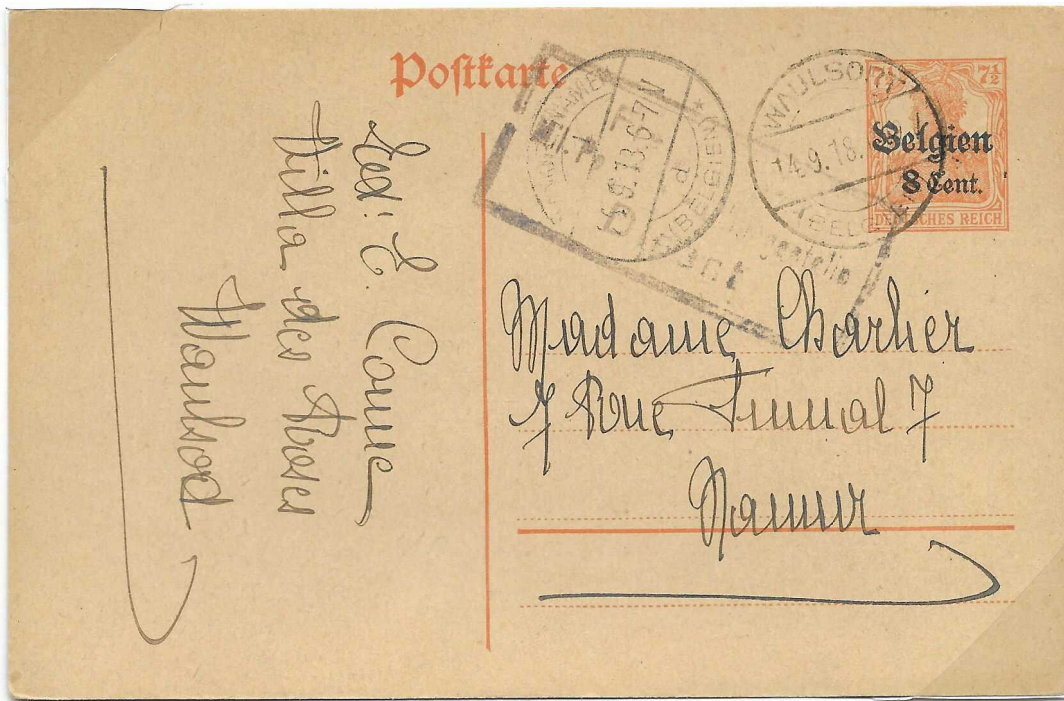 Postkarte
7½
Belgien
8 Cent.
DEUTSCHES REICH
WAULSORT
14.9.18.
(BELGIEN)
9.18.6-7
d
(BELGIEN)
Exp: E. Come
Villa des Roses
Waulsort
Madame Charlier
7 Rue 7
Namur